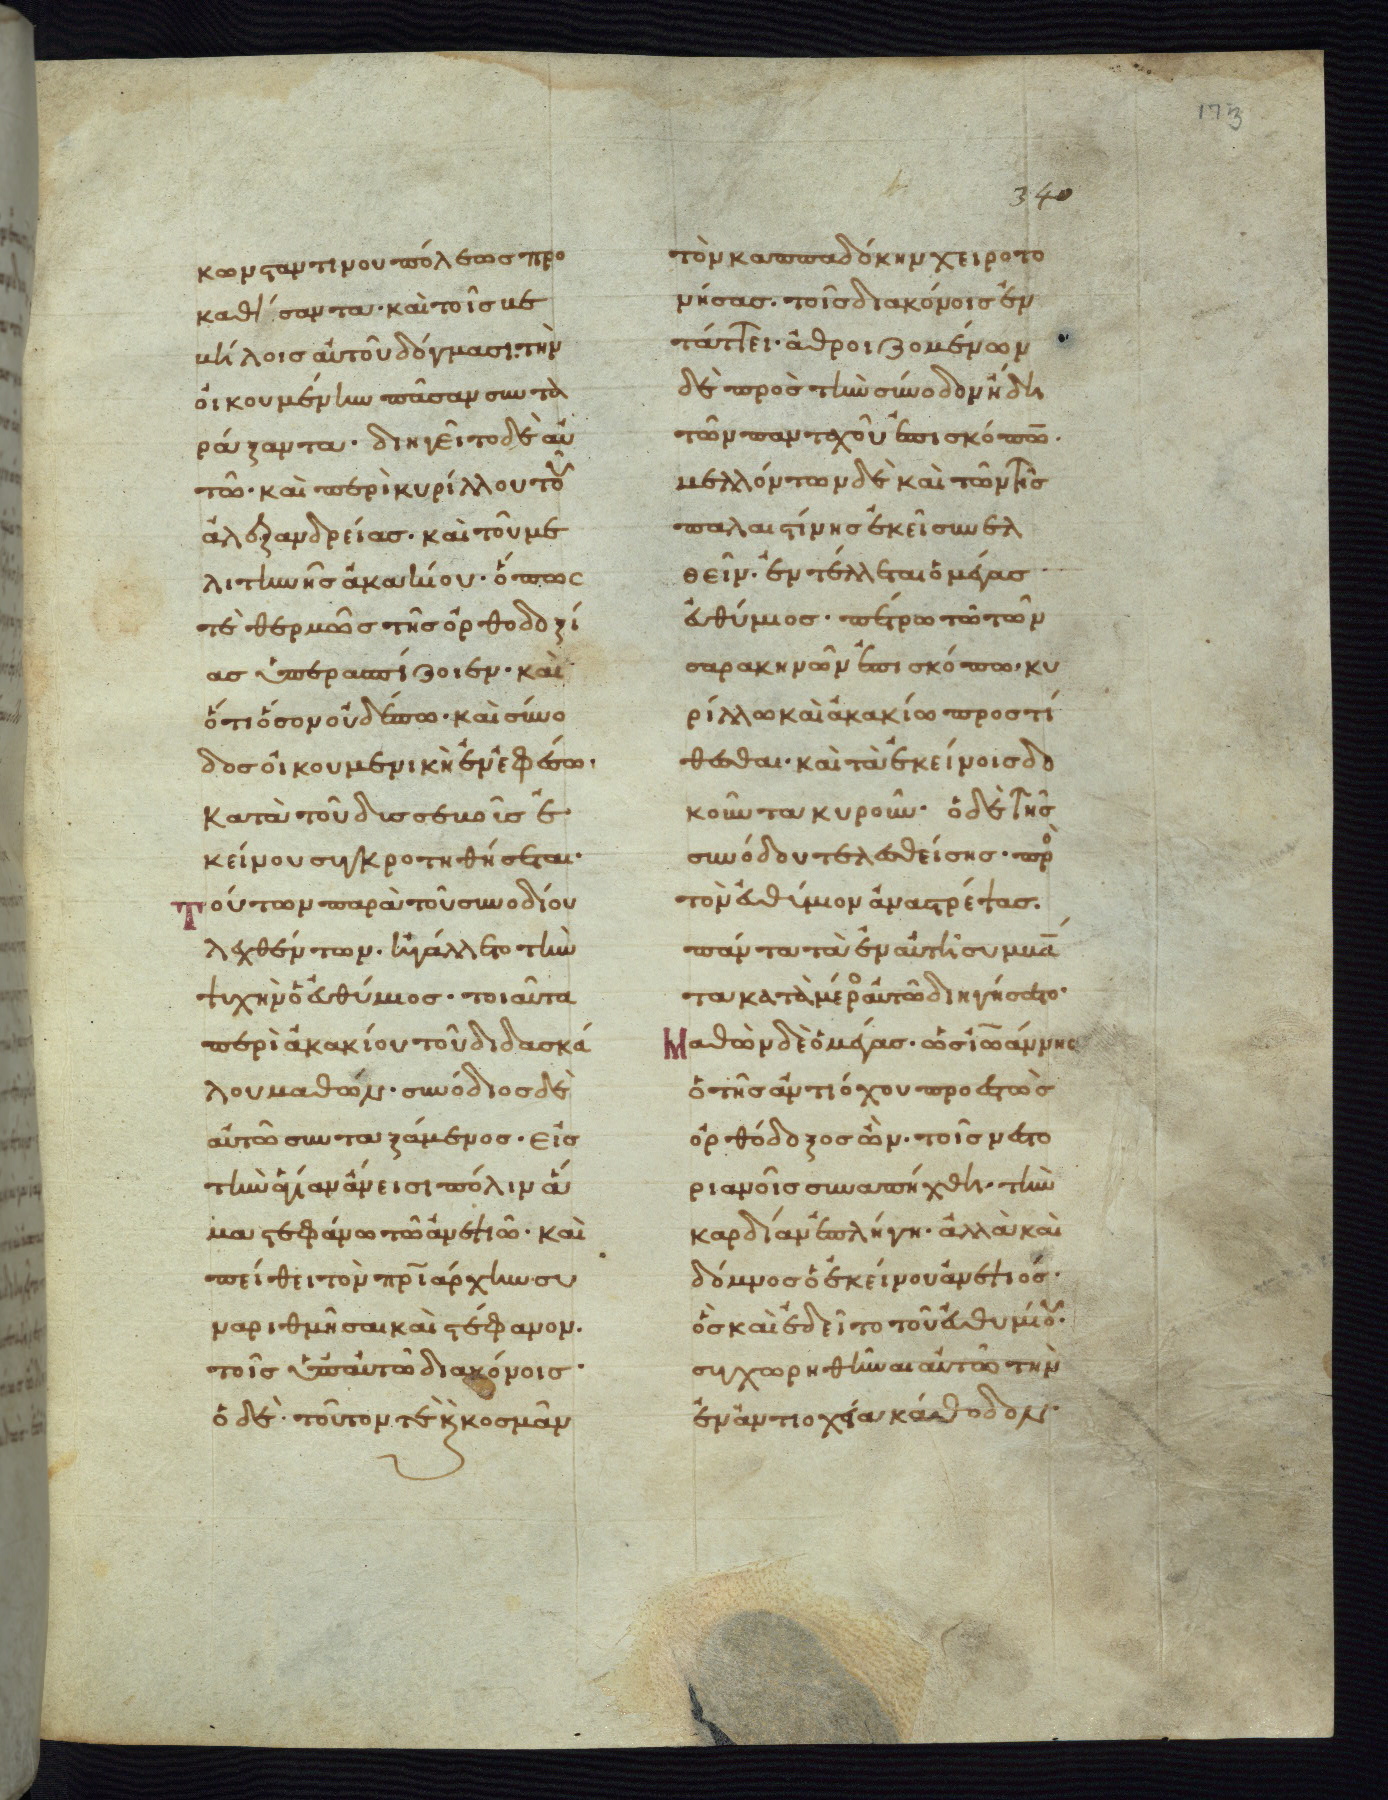 173
340
κωνσταντινουπόλεως προ
καθήσαντα· καὶ τοῖς βε
βήλοις αὐτοῦ δόγμασι· τὴν
οἰκουμένην πᾶσαν συντα
ράξαντα· διηγεῖτο δὲ αὐ
τῶ· καὶ περὶ κυρίλλου τοῦ
ἀλεξανδρείας· καὶ τοῦ με
λιτηνῆς ἀκακίου· ὅπως
τὲ θερμῶς τῆς ὀρθοδοξί
ας ὑπερασπίζοιεν· καὶ
ὅτι ὅσον οὐδέπω· καὶ σύνο
δος οἰκουμενικὴ ἐν ἐφέσω·
κατὰ τοῦ δυσσεβοῦς ἐ
κείνου συγκροτηθήσεται·
Τούτων παρὰ τοῦ συνοδίου
λεχθέντων· ἠγάλλετο τὴν
ψυχὴν ὁ εὐθύμιος· τοιαῦτα
περὶ ἀκακίου τοῦ διδασκά
λου μαθών· συνόδιος δὲ
αὐτῶ συνταξάμενος· εἰς
τὴν ἁγίαν ἄνεισι πόλιν ἅ
μα στεφάνω τῶ ἀνεψιῶ· καὶ
πείθει τὸν πρϊάρχην συ
ναριθμῆσαι καὶ στέφανον·
τοῖς ὑπ αὐτῶ διακόνοις·
ὁ δὲ· τοῦτον τὲ κ κοσμᾶν
τὸν καππαδόκην χειροτο
νήσας· τοῖς διακόνοις ἐν
τάττει· ἀθροιζομένων
δὲ πρὸς τὴν σύνοδον ἤδη
τῶν πανταχοῦ ἐπισκόπω̅·
μελλόντων δὲ καὶ τῶν τῆς
παλαιστίνης ἐκεῖ συνελ
θεῖν· ἐντέλλεται ὁ μέγας
εὐθύμιος· πέτρω τῶ τῶν
σαρακηνῶν ἐπισκόπω· κυ
ρίλλω καὶ ἀκακίω προστί
θεσθαι· καὶ τὰ ἐκείνοις δο
κοῦντα κυροῦν· ὁ δὲ τῆς
συνόδου τελεσθείσης· πρὸ
τὸν εὐθύμιον ἀναστρέψας·
πάντα τὰ ἐν αὐτῆ συμβά
τα κατὰ μέρο αὐτῶ διηγήσατο·
Μαθὼν δὲ ὁ μέγας· ὡς ἰω̅άννης
ὁ τῆς ἀντιόχου προεστὼς
ὀρθόδοξος ὢν· τοῖς νεστο
ριανοῖς συναπήχθη· τὴν
καρδίαν ἐπλήγη· ἀλλὰ καὶ
δόμνος ὁ ἐκείνου ἀνεψιός·
ὃς καὶ ἐδεῖτο τοῦ εὐθυμίου·
συγχωρηθῆναι αὐτῶ τὴν
ἐν ἀντιοχεία κάθοδον·